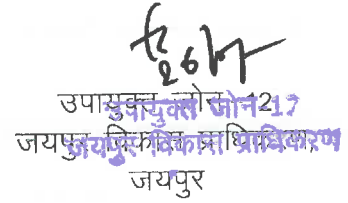 26
उपायुक्त जोन 12
उपायुक्त जोन 12
जयपुर विकास प्राधिकरण,
जयपुर विकास प्राधिकरण
जयपुर